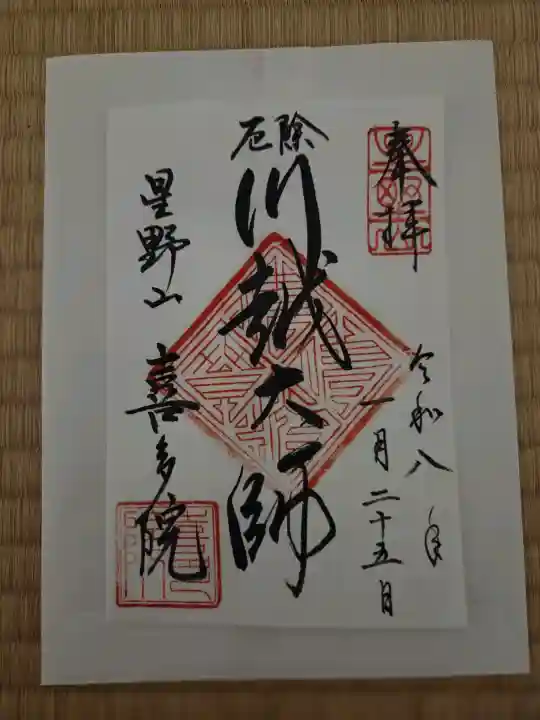 奉拝
令和八年
一月二十五日
厄除
川越大師
星野山
喜多院